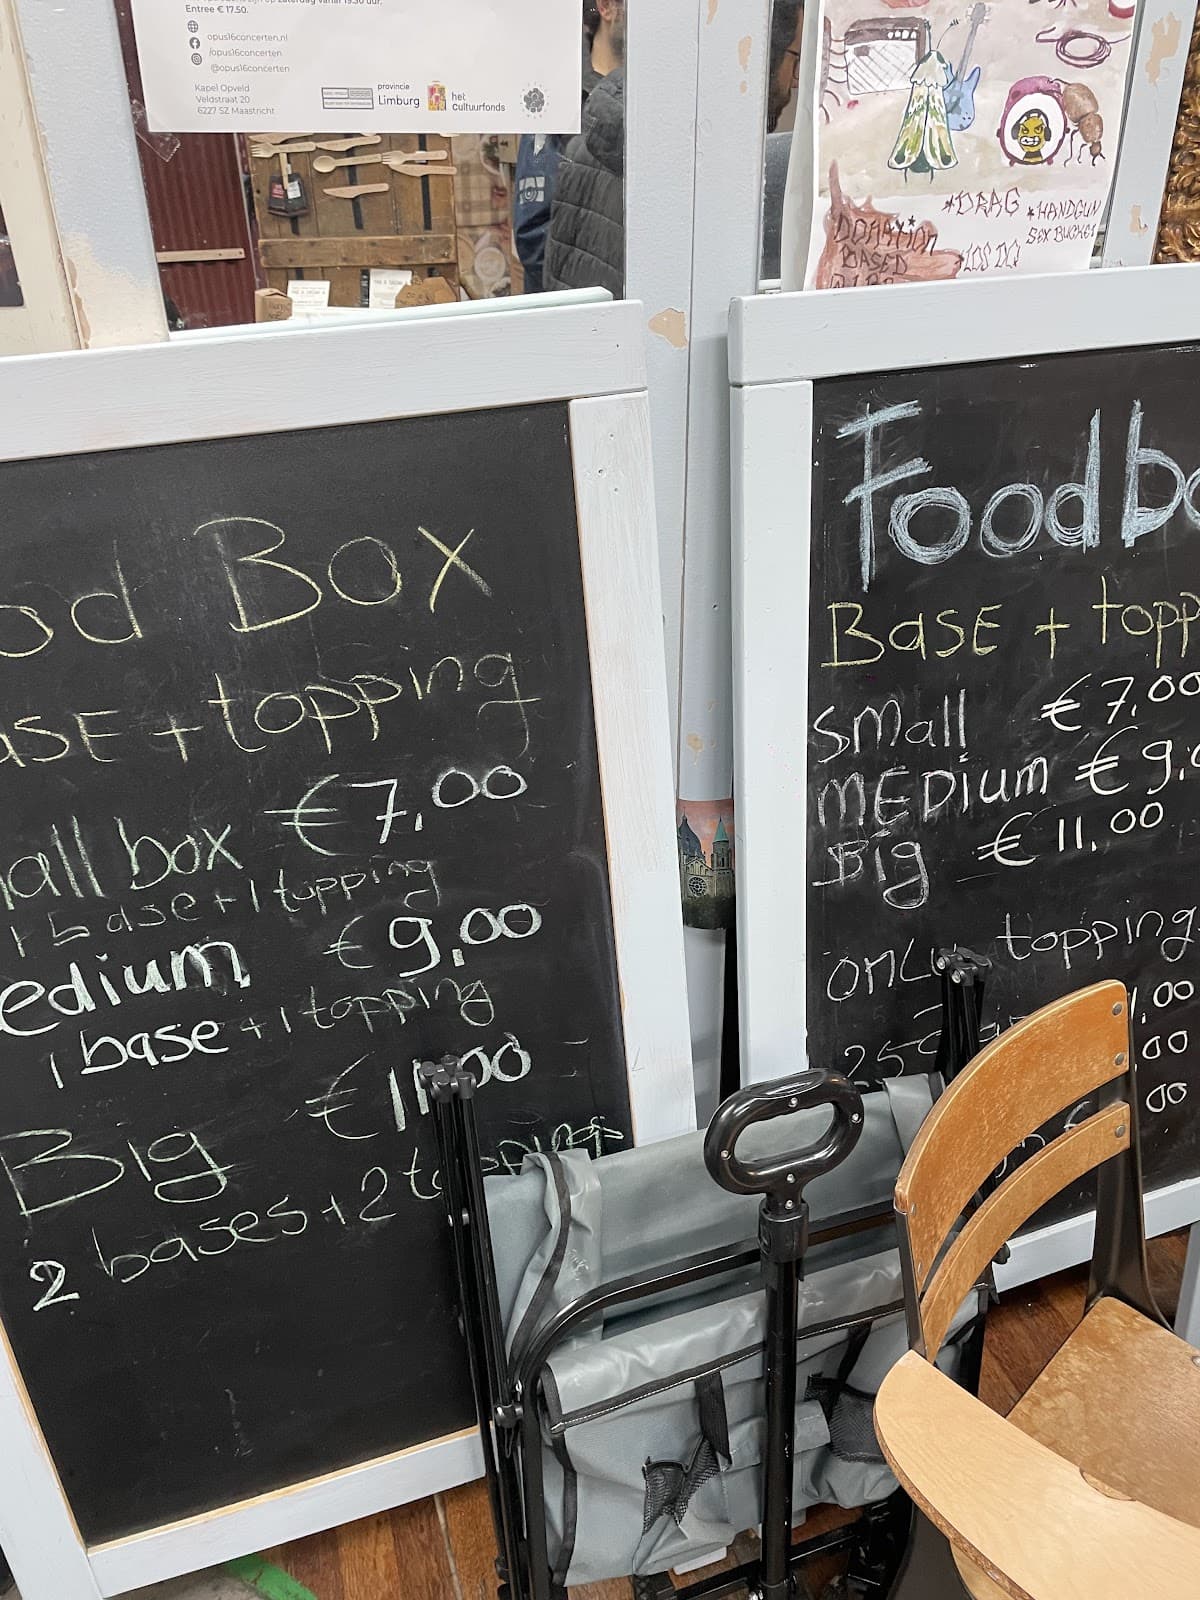 Entree € 17.50.
opus16concerten.nl
/opus16concerten
@opus16concerten
Kapel Opveld
Veldstraat 20
6227 SZ Maastricht
provincie
Limburg
het
cultuurfonds
*DRAG
*HANDGUN
SEX BUCKET
DONATION
BASED
od BOX
asE + topping
mall box €7,00
1 base + 1 topping
edium €9,00
1 base + 1 topping
Big €11,00
2 bases + 2 toppings
Foodbo
BasE + topp
small €7,00
MEDium €9,0
Big €11,00
only toppings
,00
00
00